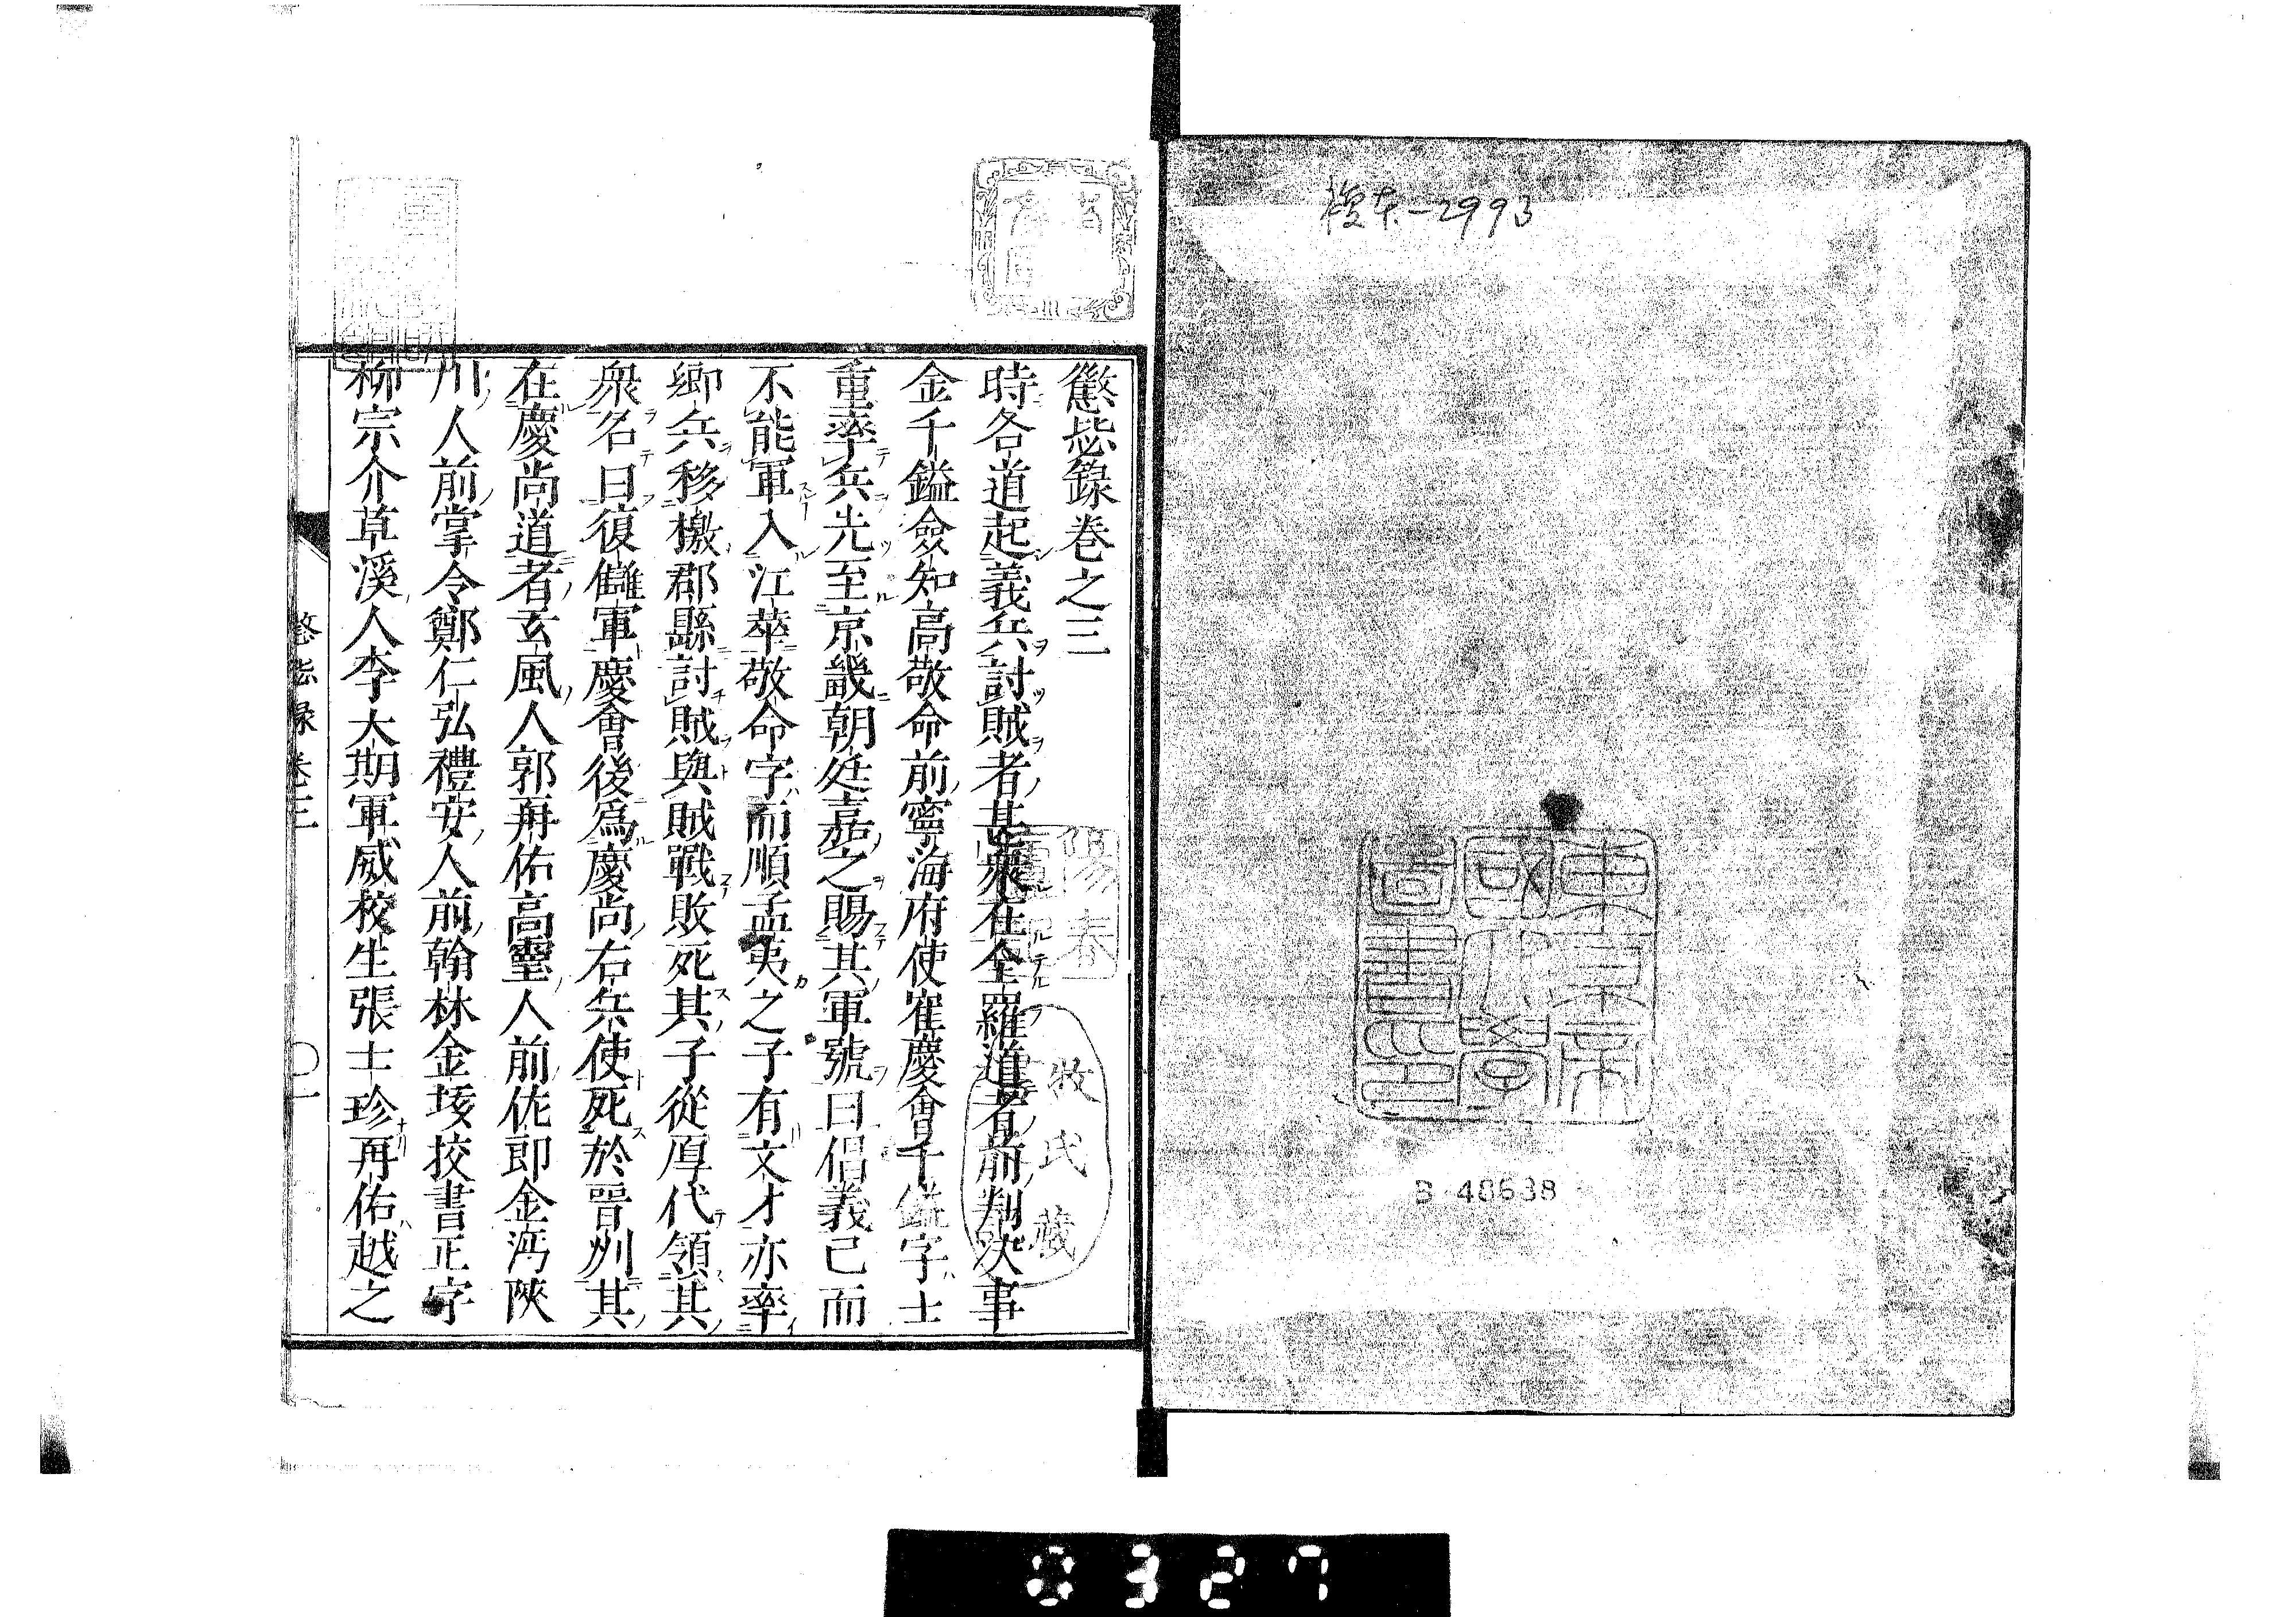 複本-2993
東京帝
國大學
圖書印
B 48638
懲毖錄卷之三
時各道起義兵討賊者甚衆在全羅道者前判決事
金千鎰僉知高敬命前寧海府使崔慶會千鎰字士
重率兵先至京畿朝廷嘉之賜其軍號曰倡義已而
不能軍入江華敬命字而順孟英之子有文才亦率
鄉兵移檄郡縣討賊與賊戰敗死其子從厚代領其
衆名曰復讎軍慶會後爲慶尚右兵使死於晉州其
在慶尚道者玄風人郭再佑高靈人前佐郎金沔陜
川人前掌令鄭仁弘禮安人前翰林金垓挍書正字
柳宗介草溪人李大期軍威校生張士珍再佑越之
陽春
牧氏藏
懲毖錄卷三
〇一
0327